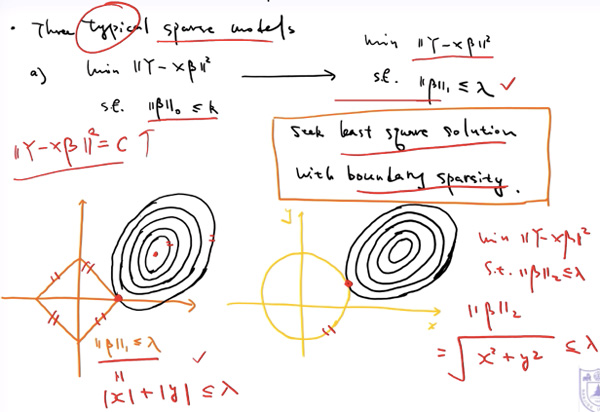 • Three typical sparse models
a) min ||Y-xβ||²
s.t. ||β||₀ ≤ k
min ||Y-xβ||²
s.t. ||β||₁ ≤ λ ✓
||Y-xβ||² = C ↑
Seek least square solution
with boundary sparsity.
||β||₁ ≤ λ ✓
|x|+|y| ≤ λ
y
x
min ||Y-xβ||²
s.t. ||β||₂ ≤ λ
||β||₂
= √x²+y² ≤ λ